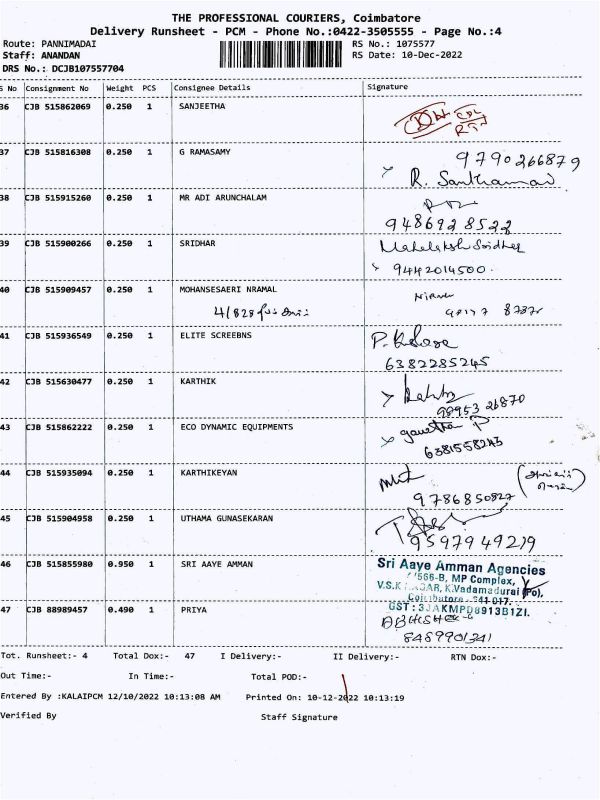 THE PROFESSIONAL COURIERS, Coimbatore
Delivery Runsheet - PCM - Phone No.:0422-3505555 - Page No.:4
Route: PANNIMADAI RS No.: 1075577
Staff: ANANDAN RS Date: 10-Dec-2022
DRS No.: DCJB107557704
S No Consignment No Weight PCS Consignee Details Signature
36 CJB 515862069 0.250 1 SANJEETHA
37 CJB 515816308 0.250 1 G RAMASAMY 9790266879
R. Santhamani
38 CJB 515915260 0.250 1 MR ADI ARUNCHALAM
9486928522
39 CJB 515900266 0.250 1 SRIDHAR Mahalaksh Sridhar
9442014500.
40 CJB 515909457 0.250 1 MOHANSESAERI NRAMAL
4/828
41 CJB 515936549 0.250 1 ELITE SCREEBNS
6382285245
42 CJB 515630477 0.250 1 KARTHIK
98953 26870
43 CJB 515862222 0.250 1 ECO DYNAMIC EQUIPMENTS
6381558243
44 CJB 515935094 0.250 1 KARTHIKEYAN
9786850827
45 CJB 515904958 0.250 1 UTHAMA GUNASEKARAN
9597949219
46 CJB 515855980 0.950 1 SRI AAYE AMMAN Sri Aaye Amman Agencies
566-B, MP Complex,
V.S.K NAGAR, K.Vadamadurai (Po),
Coimbatore - 641 017.
47 CJB 88989457 0.490 1 PRIYA GST : 33AKMPD8913B1ZI.
8489901241
Tot. Runsheet:- 4 Total Dox:- 47 I Delivery:- II Delivery:- RTN Dox:-
Out Time:- In Time:- Total POD:-
Entered By :KALAIPCM 12/10/2022 10:13:08 AM Printed On: 10-12-2022 10:13:19
Verified By Staff Signature